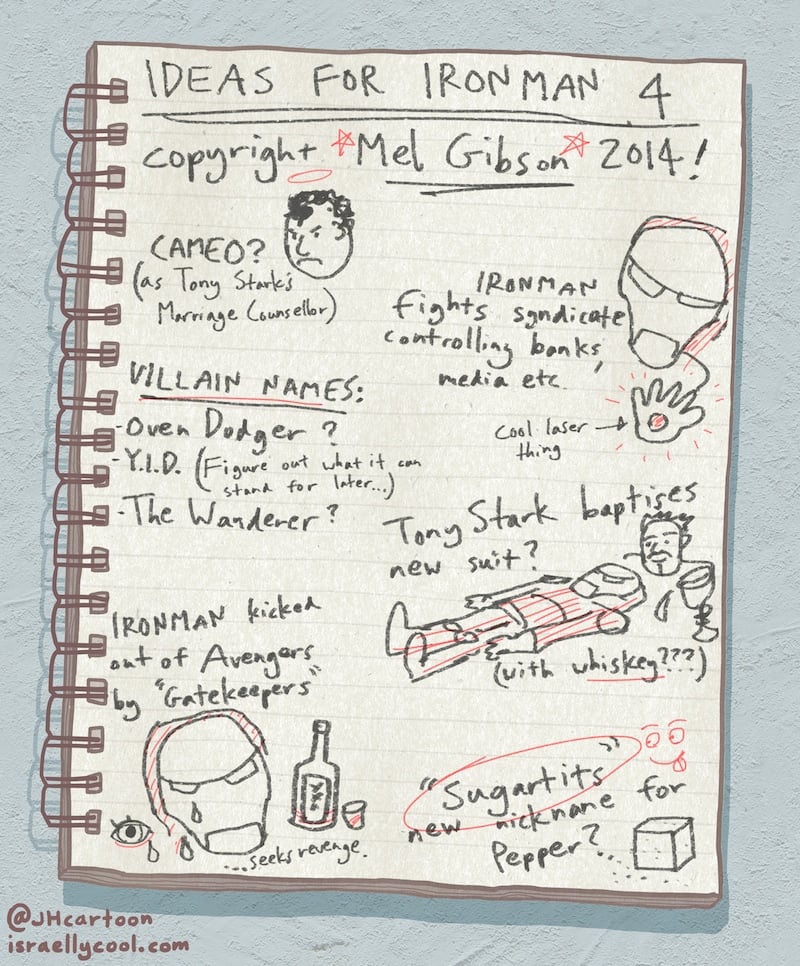 IDEAS FOR IRONMAN 4
copyright Mel Gibson 2014!
CAMEO?
(as Tony Stark's
Marriage Counsellor)
IRONMAN
fights syndicate
controlling banks,
media etc.
cool laser
thing
VILLAIN NAMES:
-Oven Dodger?
-Y.I.D. (Figure out what it can
stand for later...)
-The Wanderer?
Tony Stark baptises
new suit?
(with whiskey???)
IRONMAN kicked
out of Avengers
by "Gatekeepers"
...seeks revenge.
"Sugartits"
new nickname for
Pepper?...
@JHcartoon
israellycool.com